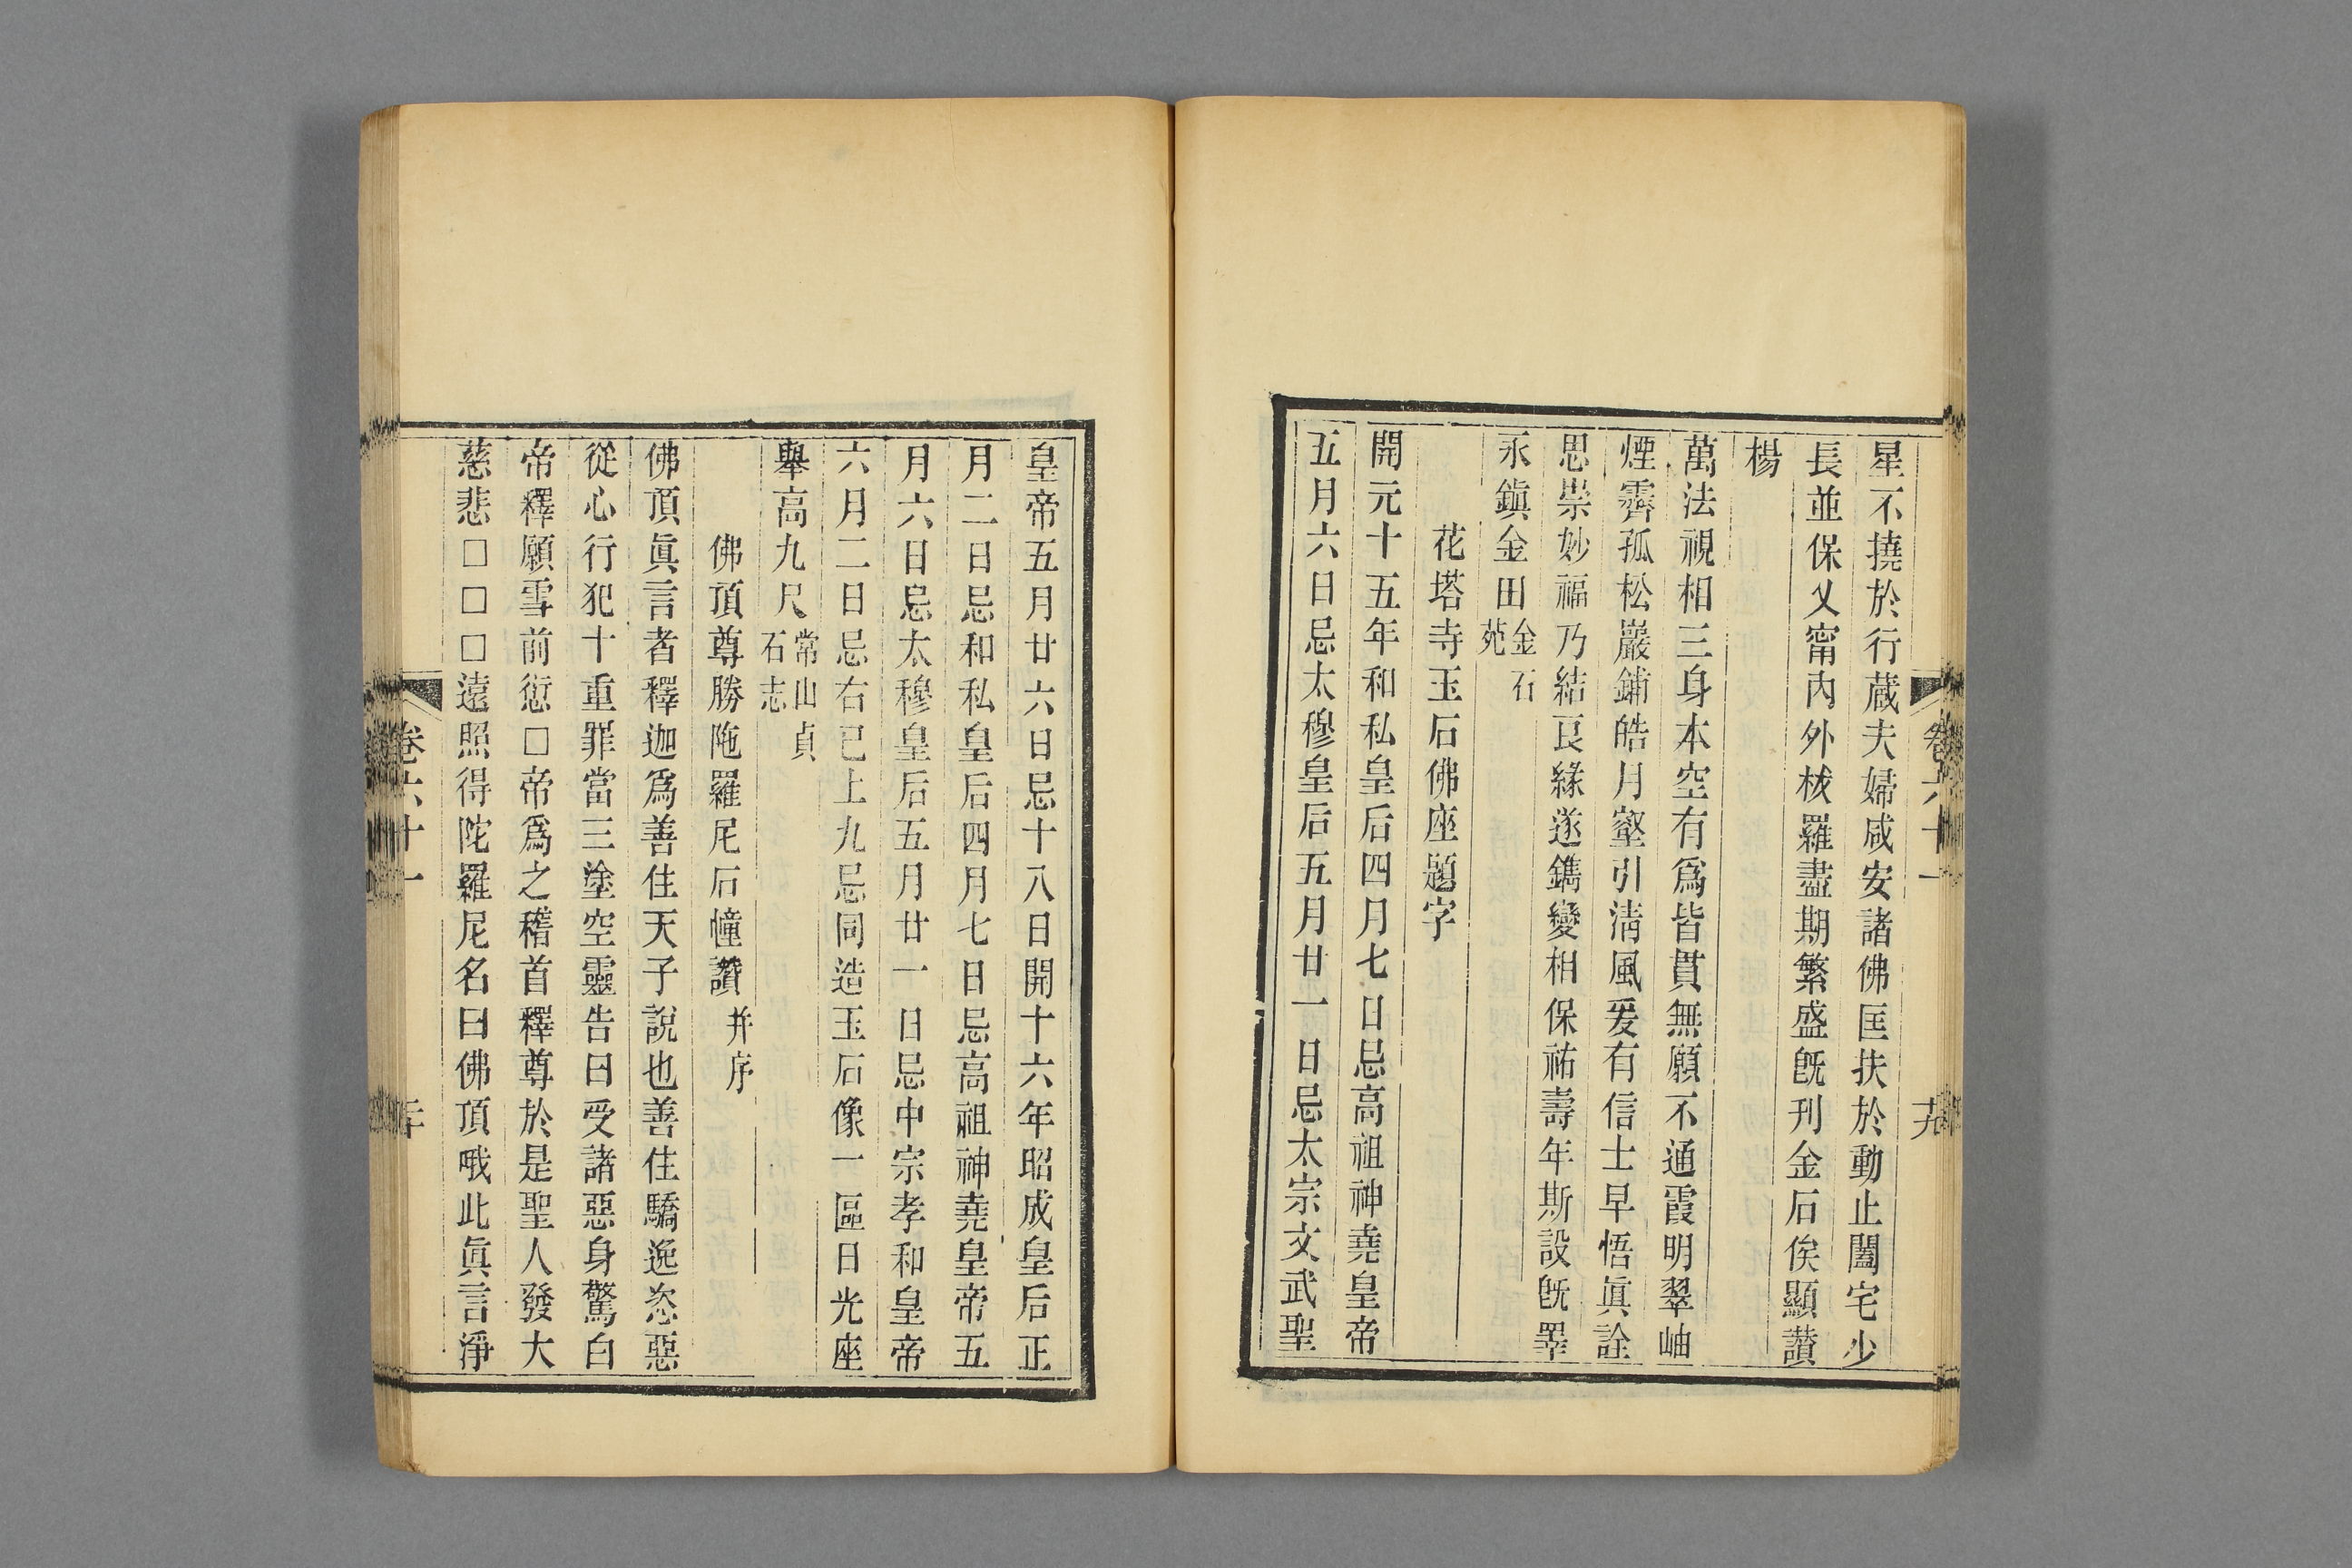 星不撓於行蔵夫婦咸安諸佛匡扶於動止闔宅少
長並保乂甯內外枝羅盡期繁盛旣刊金石俟顯讚
楊
萬法視相三身本空有爲皆貫無願不通霞明翠岫
煙霽孤松巖鋪皓月壑引淸風爰有信士早悟眞詮
思崇妙福乃結良緣遂鐫變相保祐壽年斯設旣畢
永鎭金田金石苑
花塔寺玉石佛座題字
開元十五年和私皇后四月七日忌高祖神堯皇帝
五月六日忌太穆皇后五月廿一日忌太宗文武聖
卷六十一
十九
皇帝五月廿六日忌十八日開十六年昭成皇后正
月二日忌和私皇后四月七日忌高祖神堯皇帝五
月六日忌太穆皇后五月廿一日忌中宗孝和皇帝
六月二日忌右已上九忌同造玉石像一區日光座
舉高九尺常山貞石志
佛頂尊勝陁羅尼石幢讚并序
佛頂眞言者釋迦爲善住天子說也善住驕逸恣惡
從心行犯十重罪當三塗空靈告曰受諸惡身驚白
帝釋願雪前愆□帝爲之稽首釋尊於是聖人發大
慈悲□□□遠照得陀羅尼名曰佛頂哦此眞言淨
卷六十一
二十